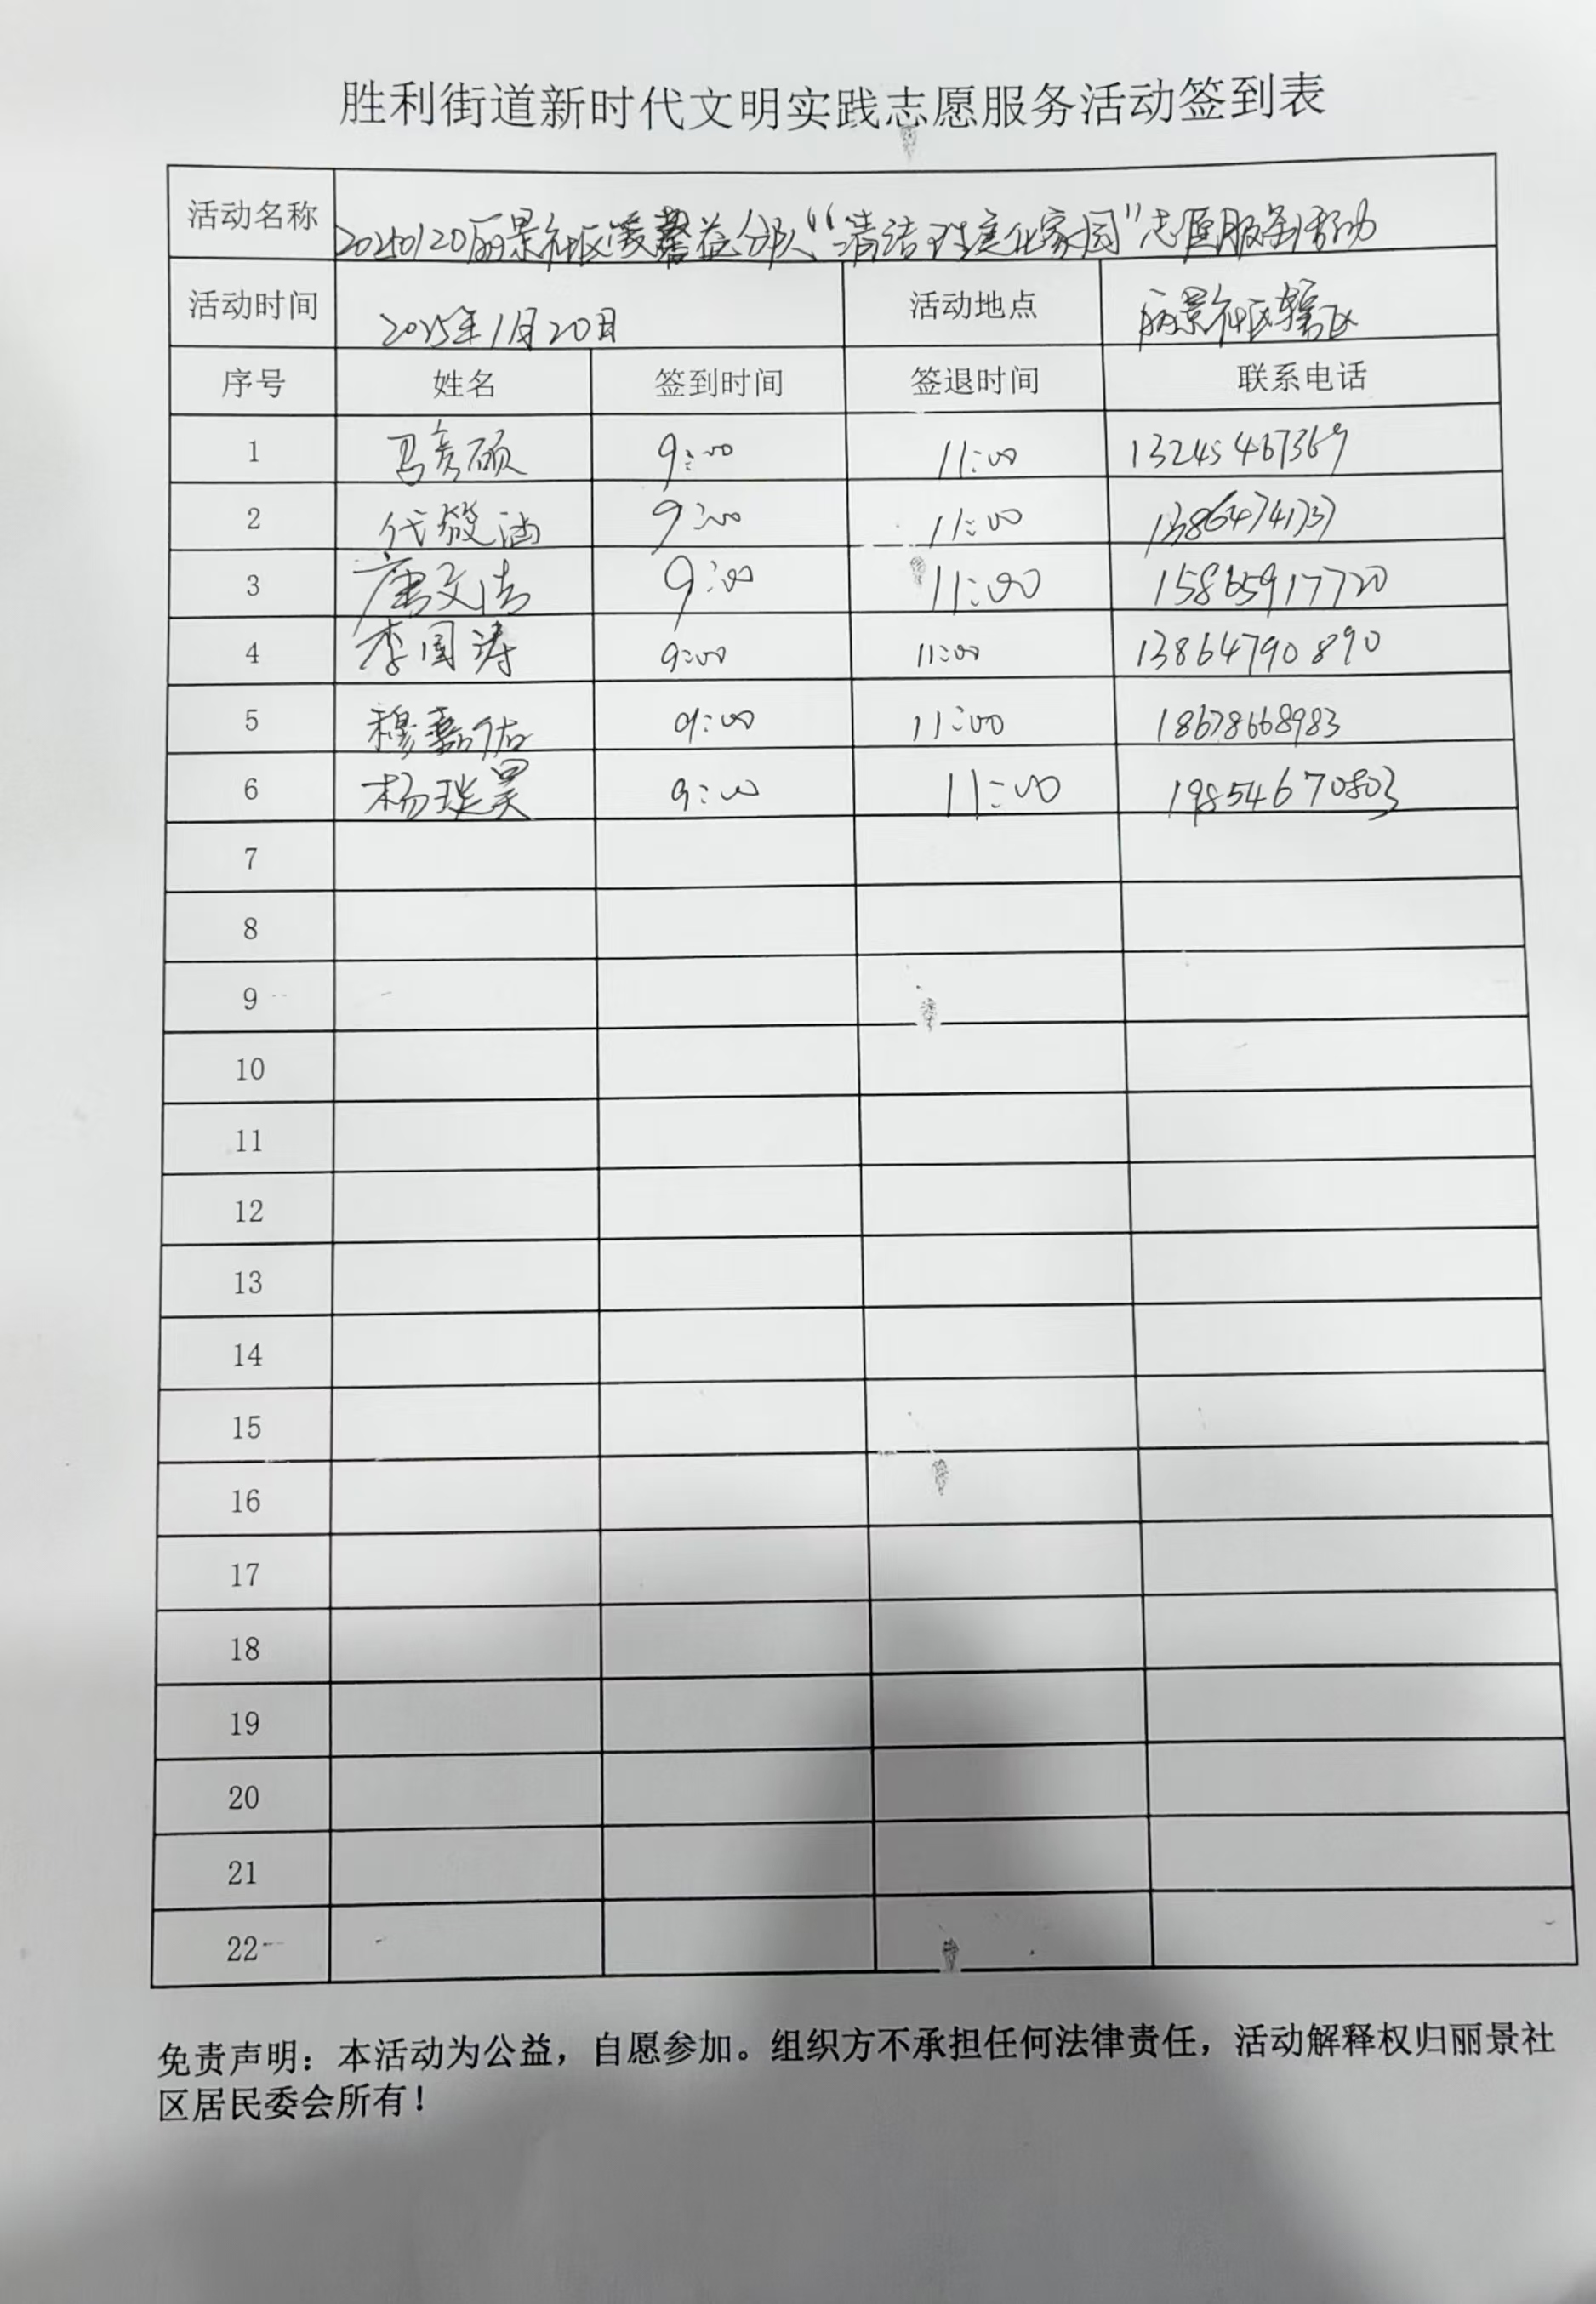 胜利街道新时代文明实践志愿服务活动签到表
活动名称 20250120丽景社区暖馨益分队“清洁 庭化家园”志愿服务活动
活动时间 2025年1月20日 活动地点 丽景社区辖区
序号 姓名 签到时间 签退时间 联系电话
1 马彦硕 9:00 11:00 13245467369
2 代 涵 9:00 11:00 13864741737
3 唐文洁 9:00 11:00 15865917720
4 李国涛 9:00 11:00 13864790890
5 穆嘉佑 9:00 11:00 18678668983
6 杨琰昊 9:00 11:00 19854670803
7
8
9
10
11
12
13
14
15
16
17
18
19
20
21
22
免责声明：本活动为公益，自愿参加。组织方不承担任何法律责任，活动解释权归丽景社
区居民委会所有！